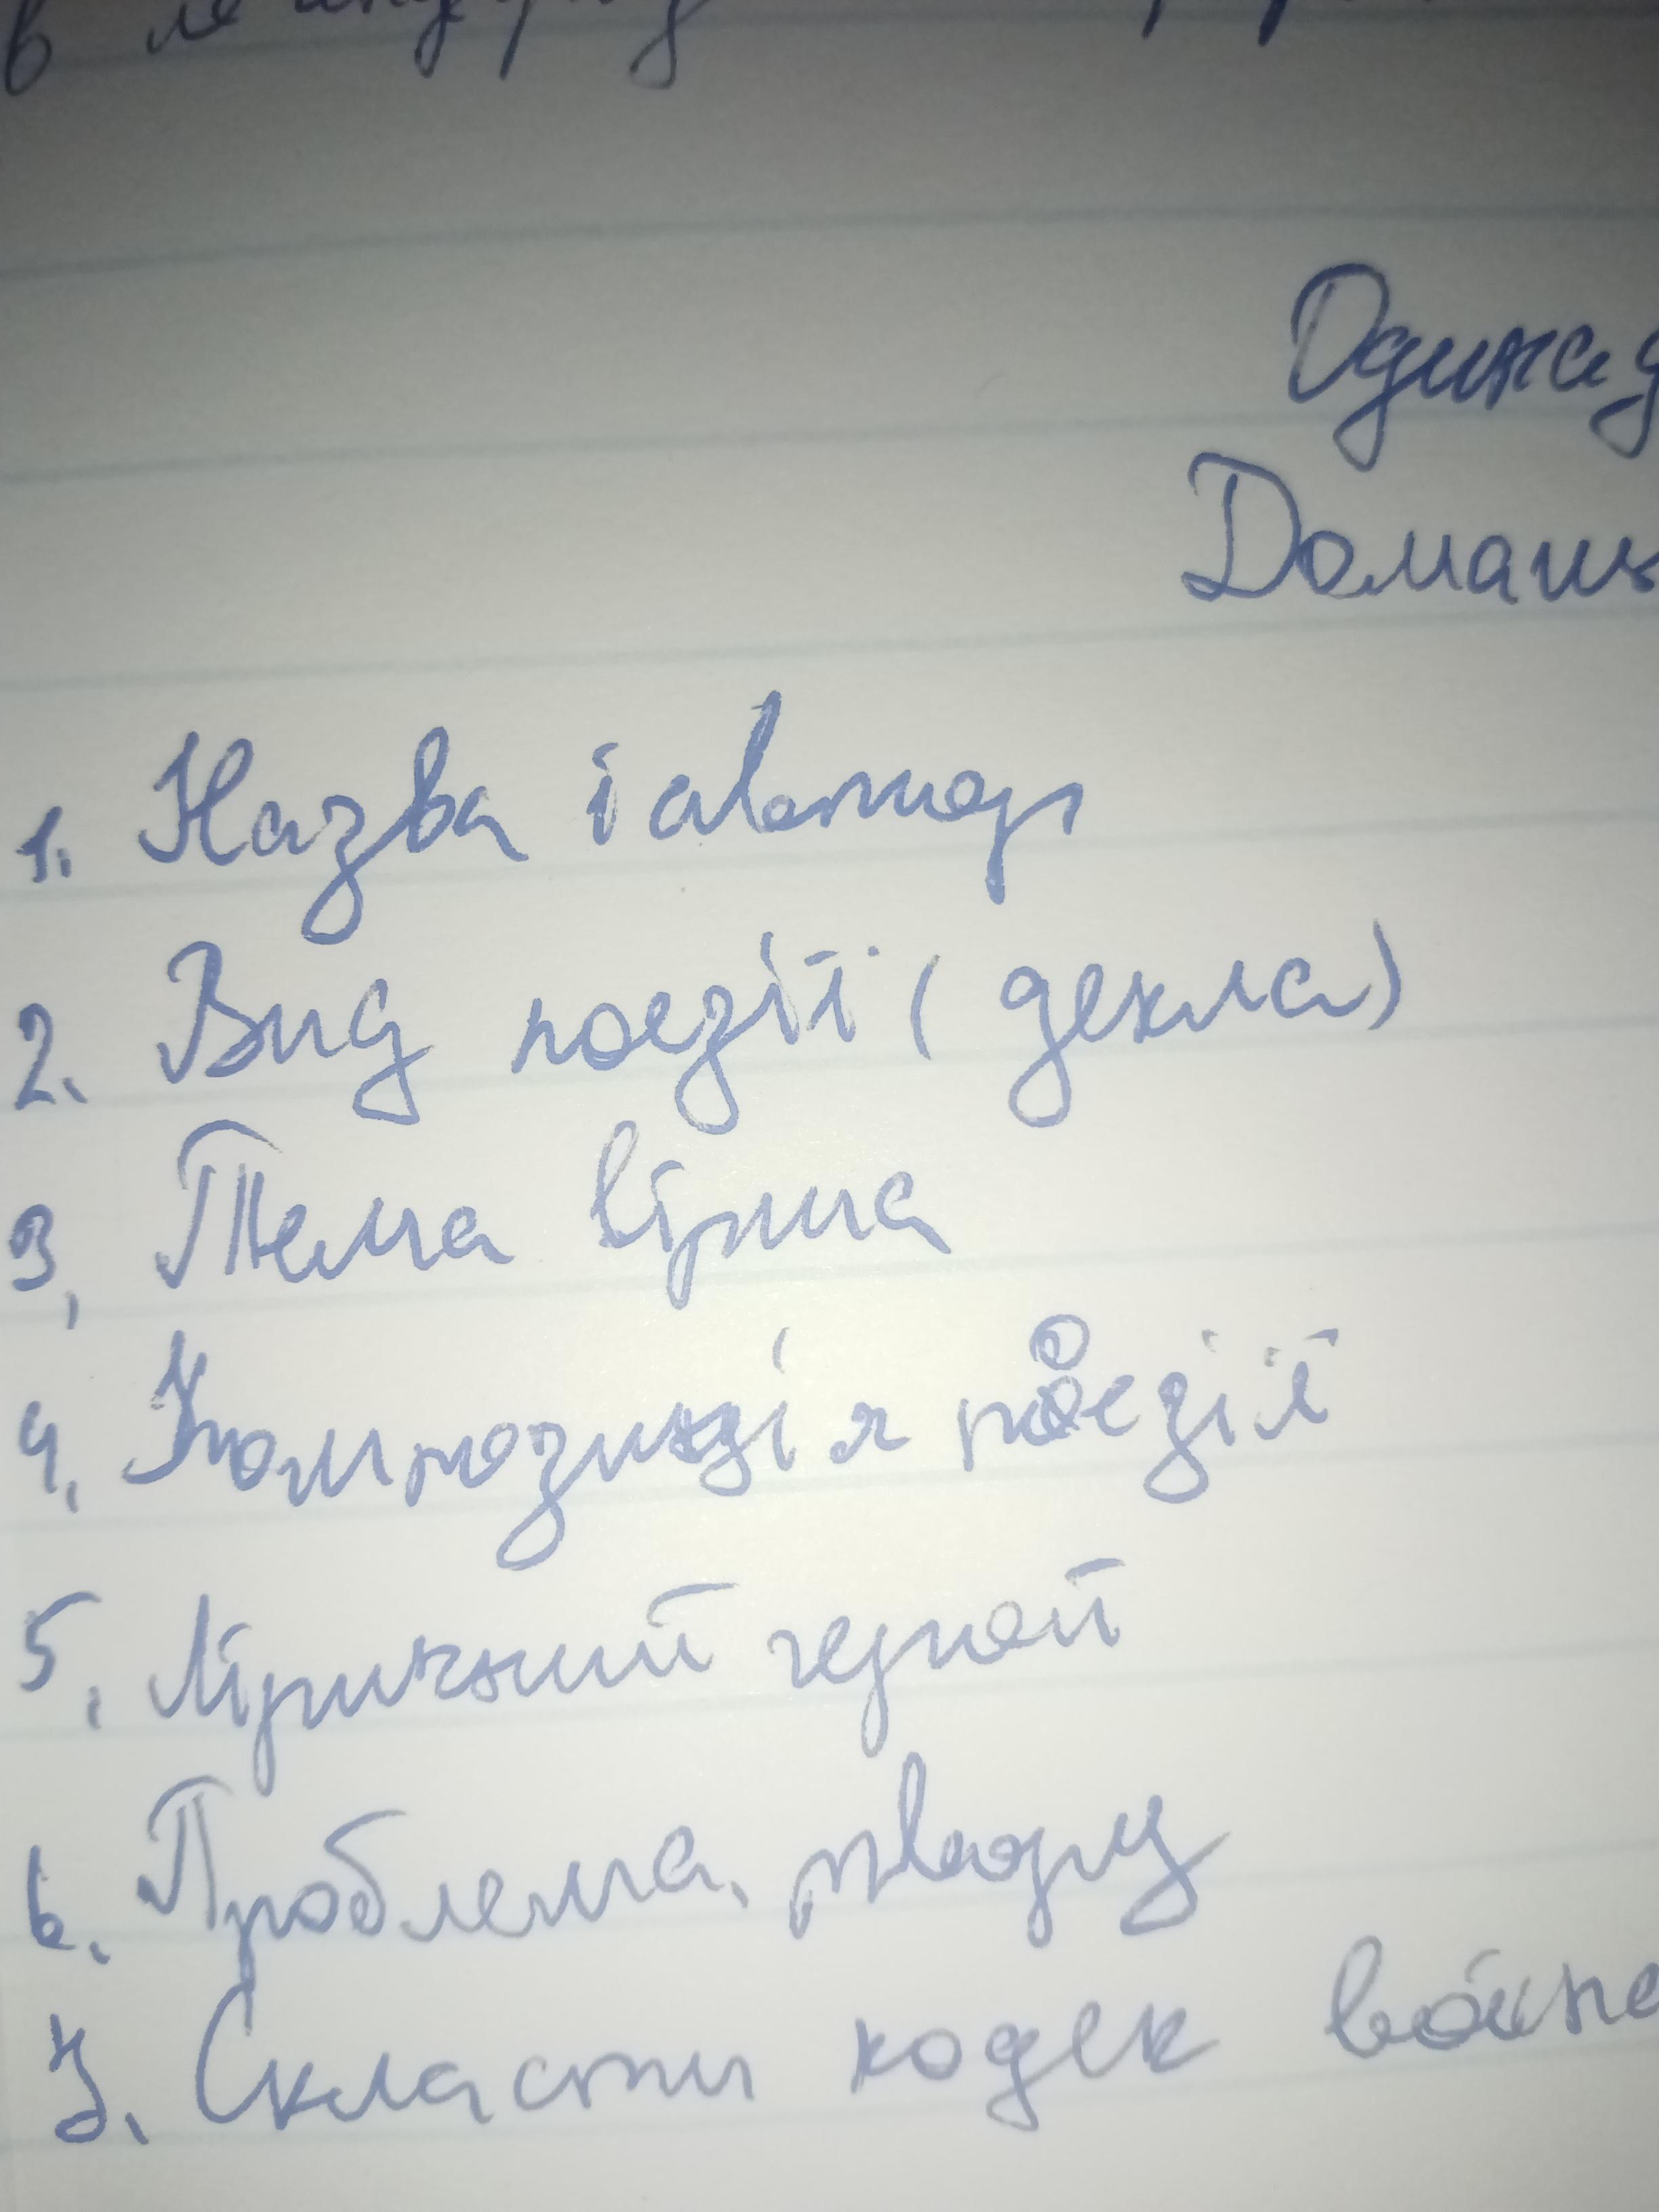 Одинад
Домаш
1. Назва і автор
2. Вид поезії (декла)
3, Тема вірша
4, Композиція поезії
5, Ліричний герой
6. Проблема, твору
7. Скласти кодек воїна